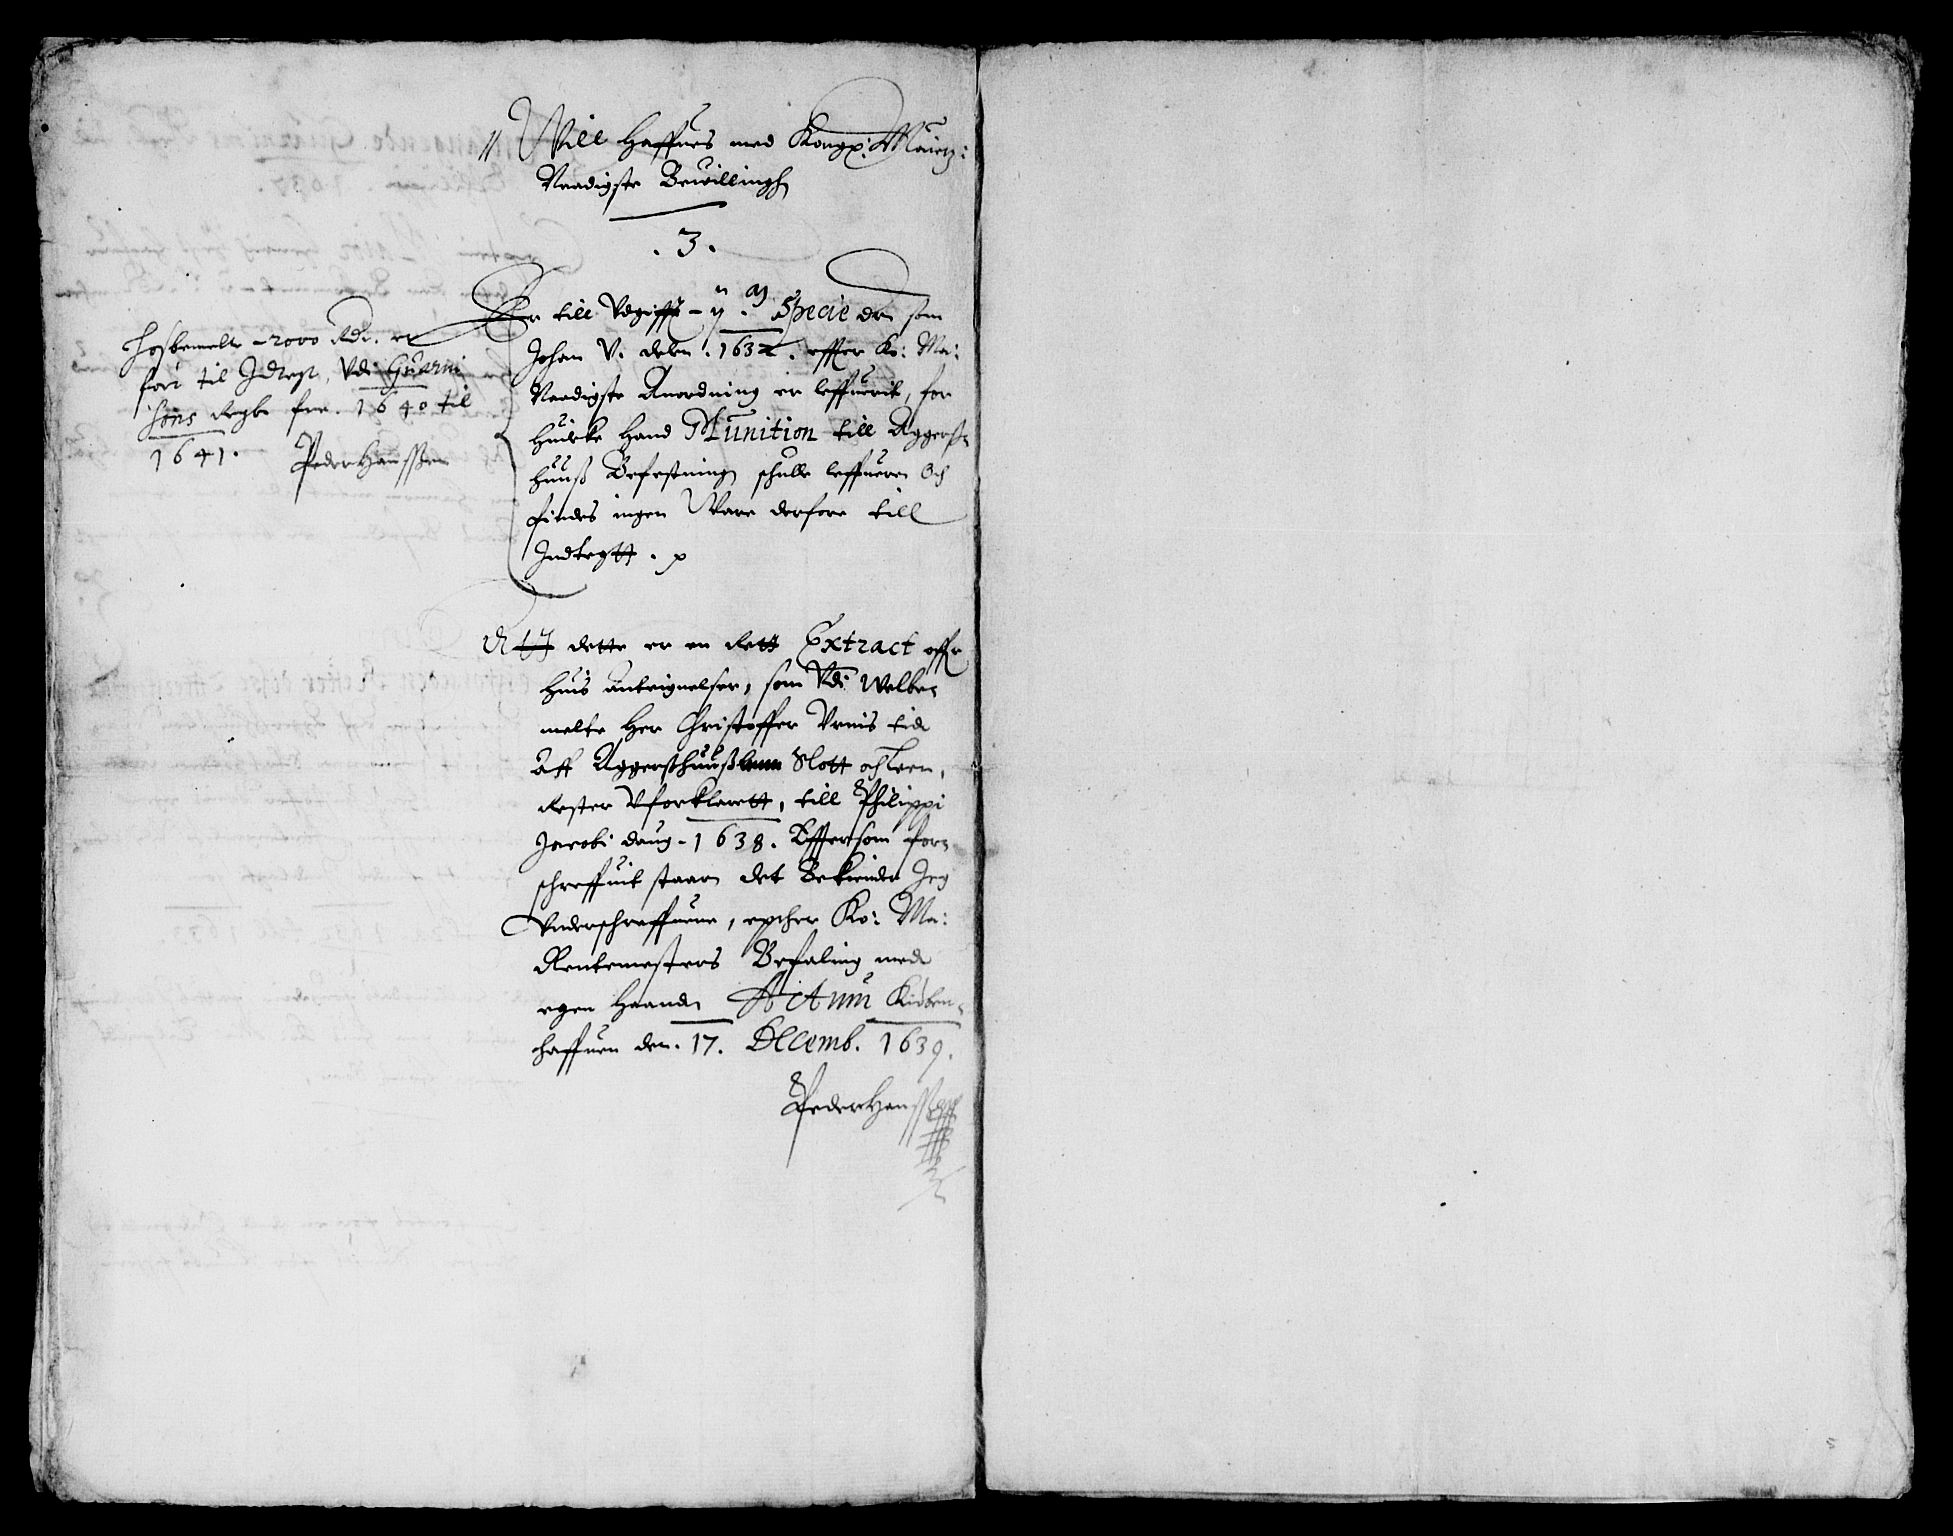 Will Haffues med Kong: Maietz:
Naadigste Bewillingh
. 3 .
Er till Udgifft - ij M Specie dlr som
Johan V. delen . 1632 . effter Ko: Ma:
Naadigste Anordning er leffuerit, for
huilcke hand Munition till Aggerß-
huuß Befestning schulle leffuere Och
findes ingen Ware derfore till
Indtegtt .
Hosbemelte - 2000 Rdr. er
ført til Indtegt, Udi Guarni
sons Regb: for . 1640 til
1641. Peder Hanssen
At dette er en Rett Extract offr
huis Antegnelser, som Udi Welbe-
melte Her Christoffer Urnis tid
Aff Aggerßhuuß Slott och Leen,
Rester Uforklarett, till Philippi
Jacobi daug - 1638. Effter som for-
schreffuit staar det Bekiender Jeg
Underschreffuene, epther Ko: Ma:
Rentemesters Befaling med
egen Haand Actum Kiøben-
haffuen den . 17. Decemb. 1639.
Peder Hanssen